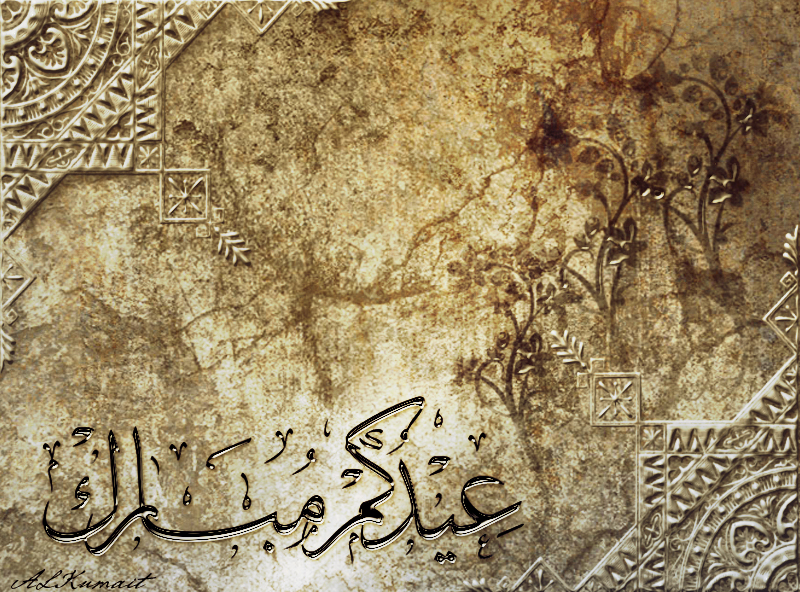 عيدكم مُبَارك
ALKumait